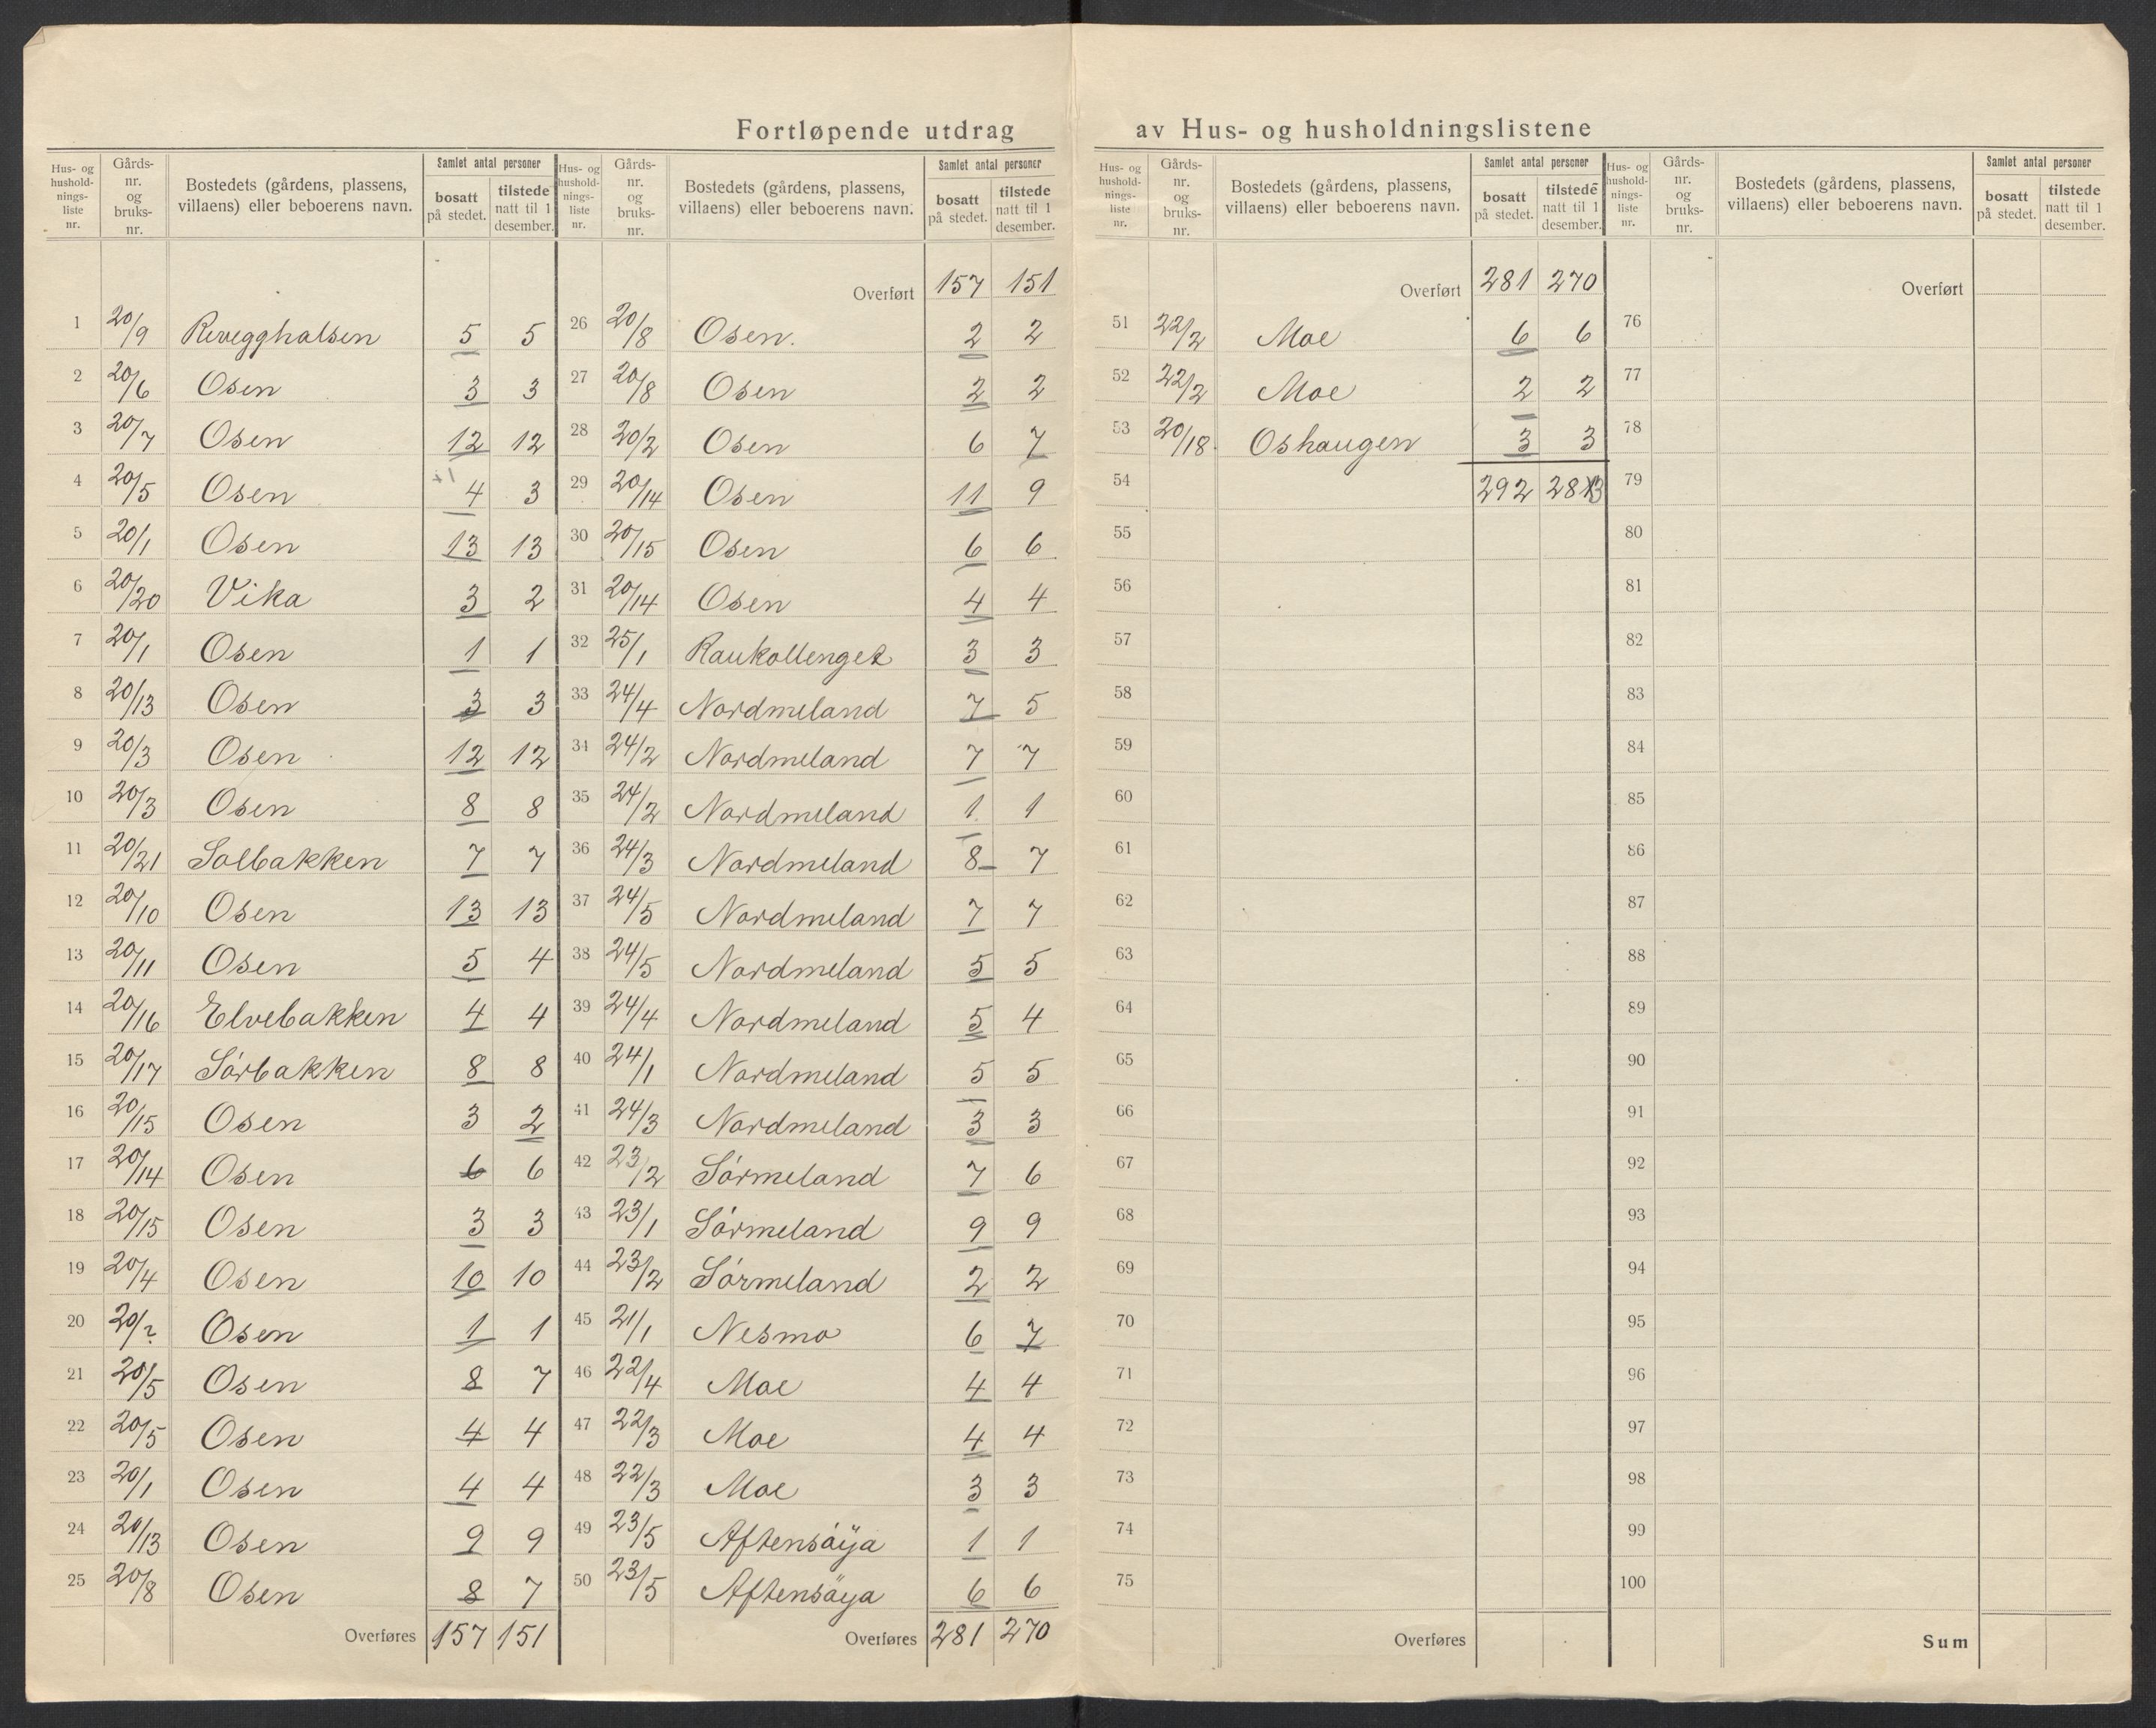 Fortløpende utdrag av Hus- og husholdningslistene
Hus- og husholdnings-liste nr. | Gårds-nr. og bruks-nr. | Bostedets (gårdens, plassens, villaens) eller beboerens navn. | Samlet antal personer | bosatt på stedet. | tilstede natt til 1 desember.
1 20/9 Revegghalsen 5 5
2 20/6 Osen 3 3
3 20/7 Osen 12 12
4 20/5 Osen 4 3
5 20/1 Osen 13 13
6 20/20 Vika 3 2
7 20/1 Osen 1 1
8 20/13 Osen 3 3
9 20/3 Osen 12 12
10 20/3 Osen 8 8
11 20/21 Solbakken 7 7
12 20/10 Osen 13 13
13 20/11 Osen 5 4
14 20/16 Elvebakken 4 4
15 20/17 Sórbakken 8 8
16 20/15 Osen 3 2
17 20/14 Osen 6 6
18 20/15 Osen 3 3
19 20/4 Osen 10 10
20 20/? Osen 1 1
21 20/5 Osen 8 7
22 20/5 Osen 4 4
23 20/1 Osen 4 4
24 20/13 Osen 9 9
25 20/8 Osen 8 7
Overføres 157 151
Hus- og husholdnings-liste nr. | Gårds-nr. og bruks-nr. | Bostedets (gårdens, plassens, villaens) eller beboerens navn. | Samlet antal personer | bosatt på stedet. | tilstede natt til 1 desember.
Overført 157 151
26 20/8 Osen. 2 2
27 20/8 Osen 2 2
28 20/2 Osen 6 7
29 20/14 Osen 11 9
30 20/15 Osen 6 6
31 20/14 Osen 4 4
32 25/1 Raukollenget 3 3
33 24/4 Nordmeland 7 5
34 24/2 Nordmeland 7 7
35 24/2 Nordmeland 1 1
36 24/3 Nordmeland 8 7
37 24/5 Nordmeland 7 7
38 24/5 Nordmeland 5 5
39 24/4 Nordmeland 5 4
40 24/1 Nordmeland 5 5
41 24/3 Nordmeland 3 3
42 23/2 Sórmeland 7 6
43 23/1 Sórmeland 9 9
44 23/2 Sórmeland 2 2
45 21/1 Nesmo 6 7
46 22/4 Moe 4 4
47 22/3 Moe 4 4
48 22/3 Moe 3 3
49 23/5 Aftensóÿa 1 1
50 23/5 Aftensöya 6 6
Overføres 281 270
Hus- og husholdnings-liste nr. | Gårds-nr. og bruks-nr. | Bostedets (gårdens, plassens, villaens) eller beboerens navn. | Samlet antal personer | bosatt på stedet. | tilstede natt til 1 desember.
Overført 281 270
51 22/2 Moe 6 6
52 22/2 Moe 2 2
53 20/18. Oshaugen 3 3
54 292
55
56
57
58
59
60
61
62
63
64
65
66
67
68
69
70
71
72
73
74
75
Overføres
Hus- og husholdnings-liste nr. | Gårds-nr. og bruks-nr. | Bostedets (gårdens, plassens, villaens) eller beboerens navn. | Samlet antal personer | bosatt på stedet. | tilstede natt til 1 desember.
Overført
76
77
78
79
80
81
82
83
84
85
86
87
88
89
90
91
92
93
94
95
96
97
98
99
100
Sum